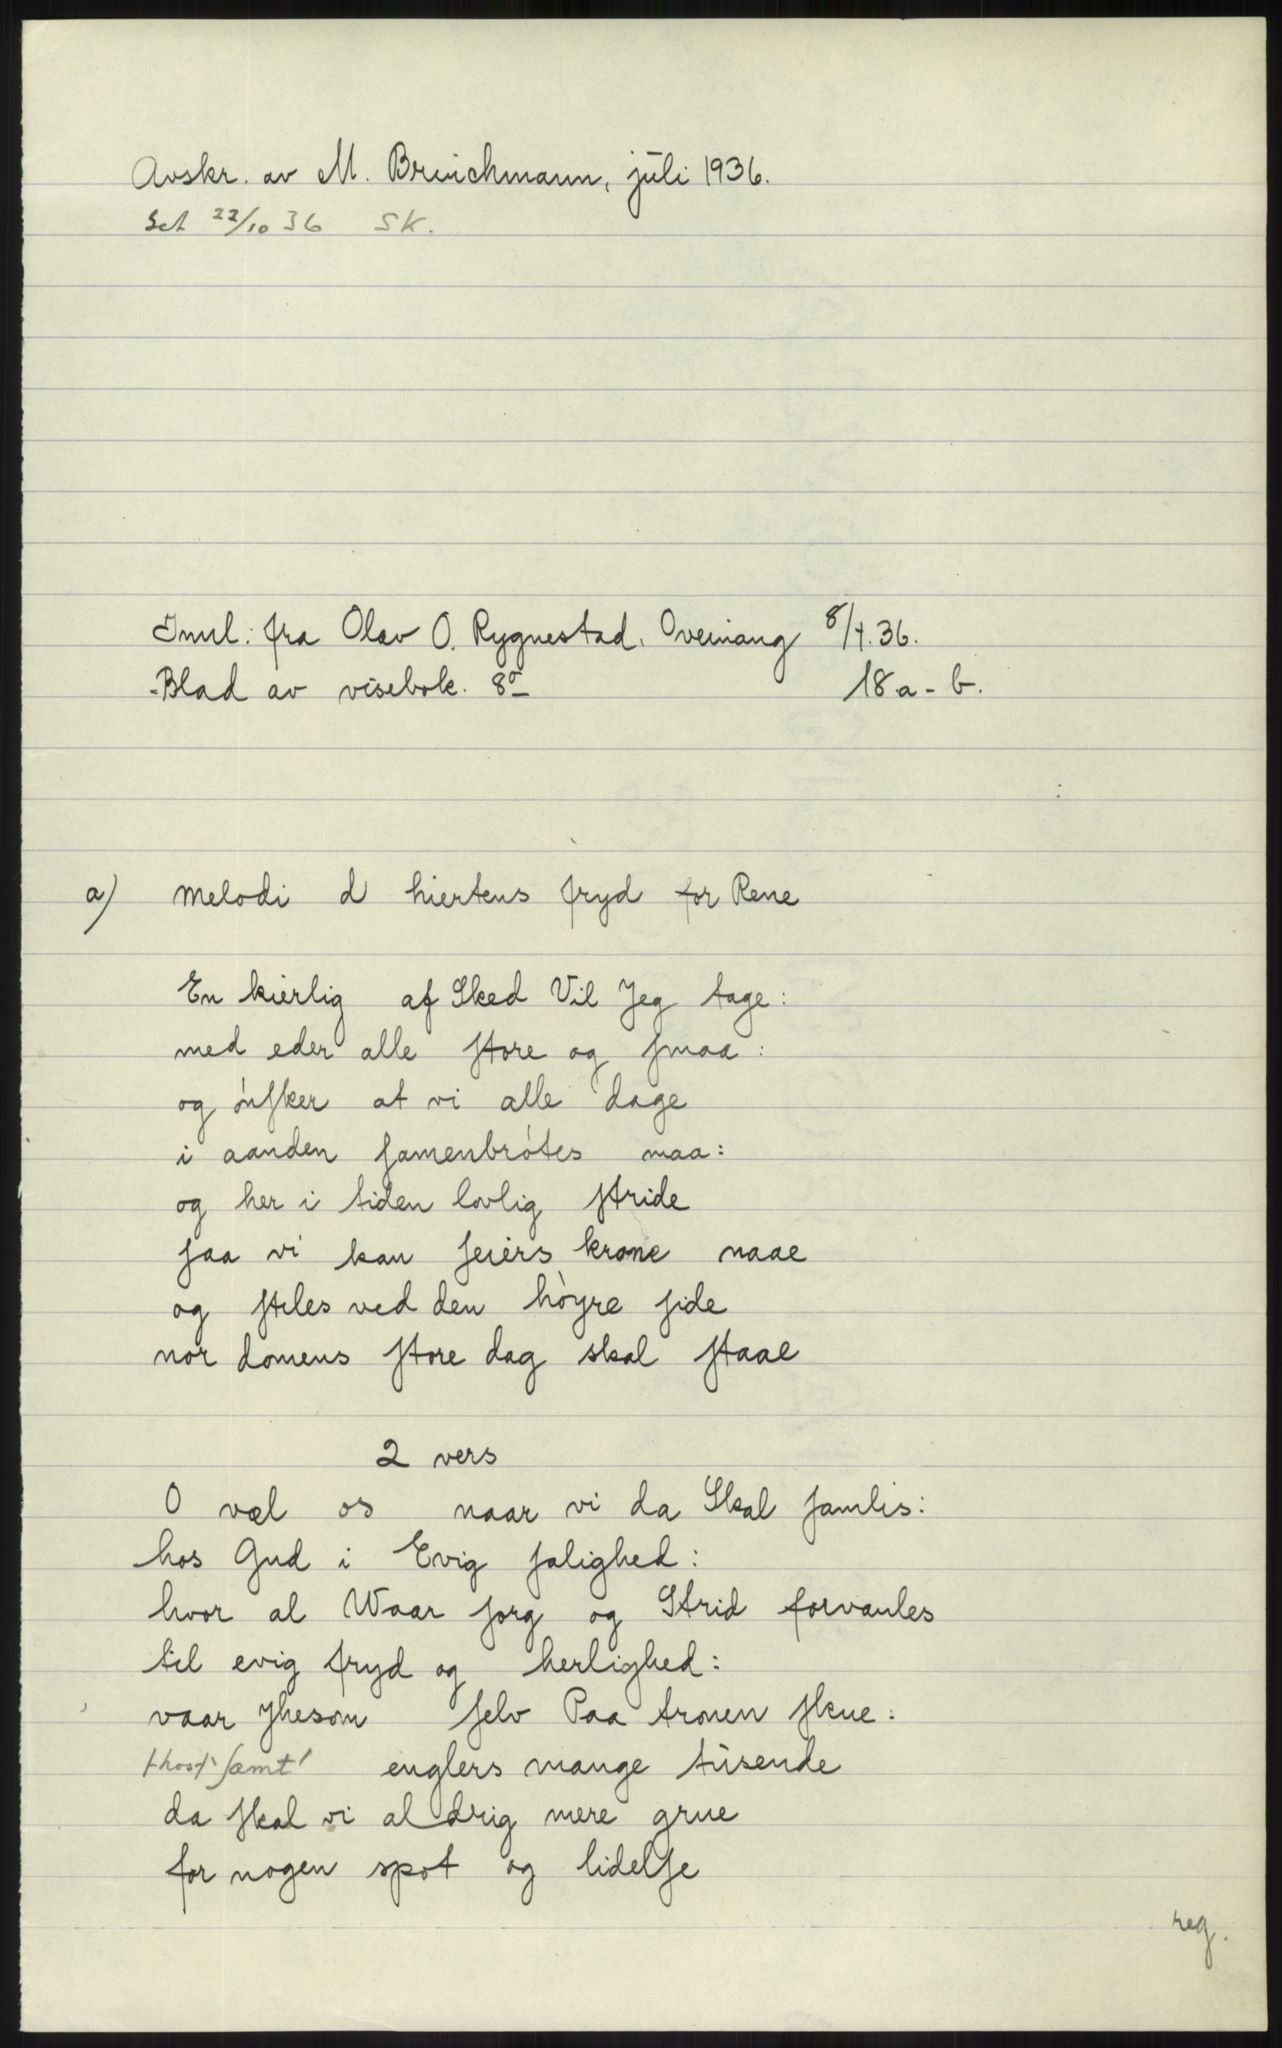 Avskr. av M. Breichmann, juli 1936.
Set 22/10 36 SK.
Innl. fra Olav O. Rygnestad. Oveinang 8/4.36.
Blad av visebok. 8º 18 a - b.
a) Melodi d hiertens fryd for Rene
En kierlig af Sked Vil Jeg tage:
med eder alle store og smaa:
og ønsker at vi alle dage
i aanden samenbrótes maa:
og her i tiden lovlig stride
saa vi kan seiers krone naae
og stiles ved den høyre side
nor domens store dag skal staae
2 vers
O væl os naar vi da Skal samlis:
hos Gud i Evig salighed:
hvor al Waar sorg og Strid forvanles
til evig fryd og herlighed:
vaar Jhesom selv Paa tronen skue:
samt englers mange tusende
da skal vi al drig mere grue
for nogen spot og lidelse
reg.